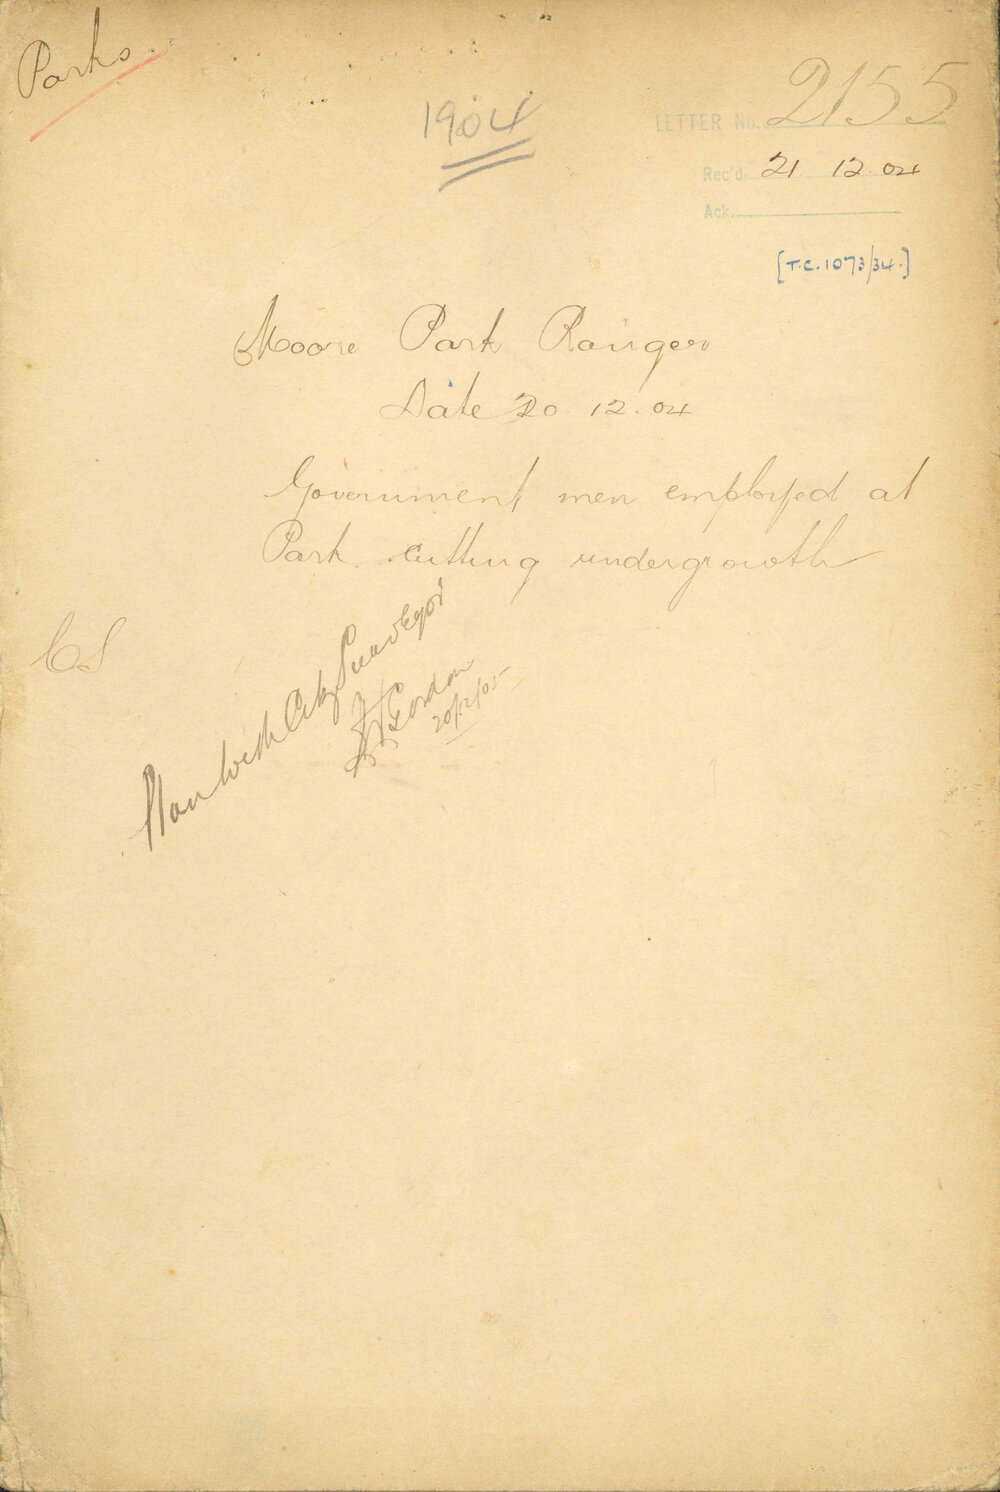 Parks
1904
LETTER No. 2155
Rec'd 21 12.04
Ack.
[T.C. 1073/34.]
Moore Park Ranger
Date 20.12.04
Government men employed at
Park cutting undergrowth
CS
Plan with City Surveyor
Gordon
20/12/05